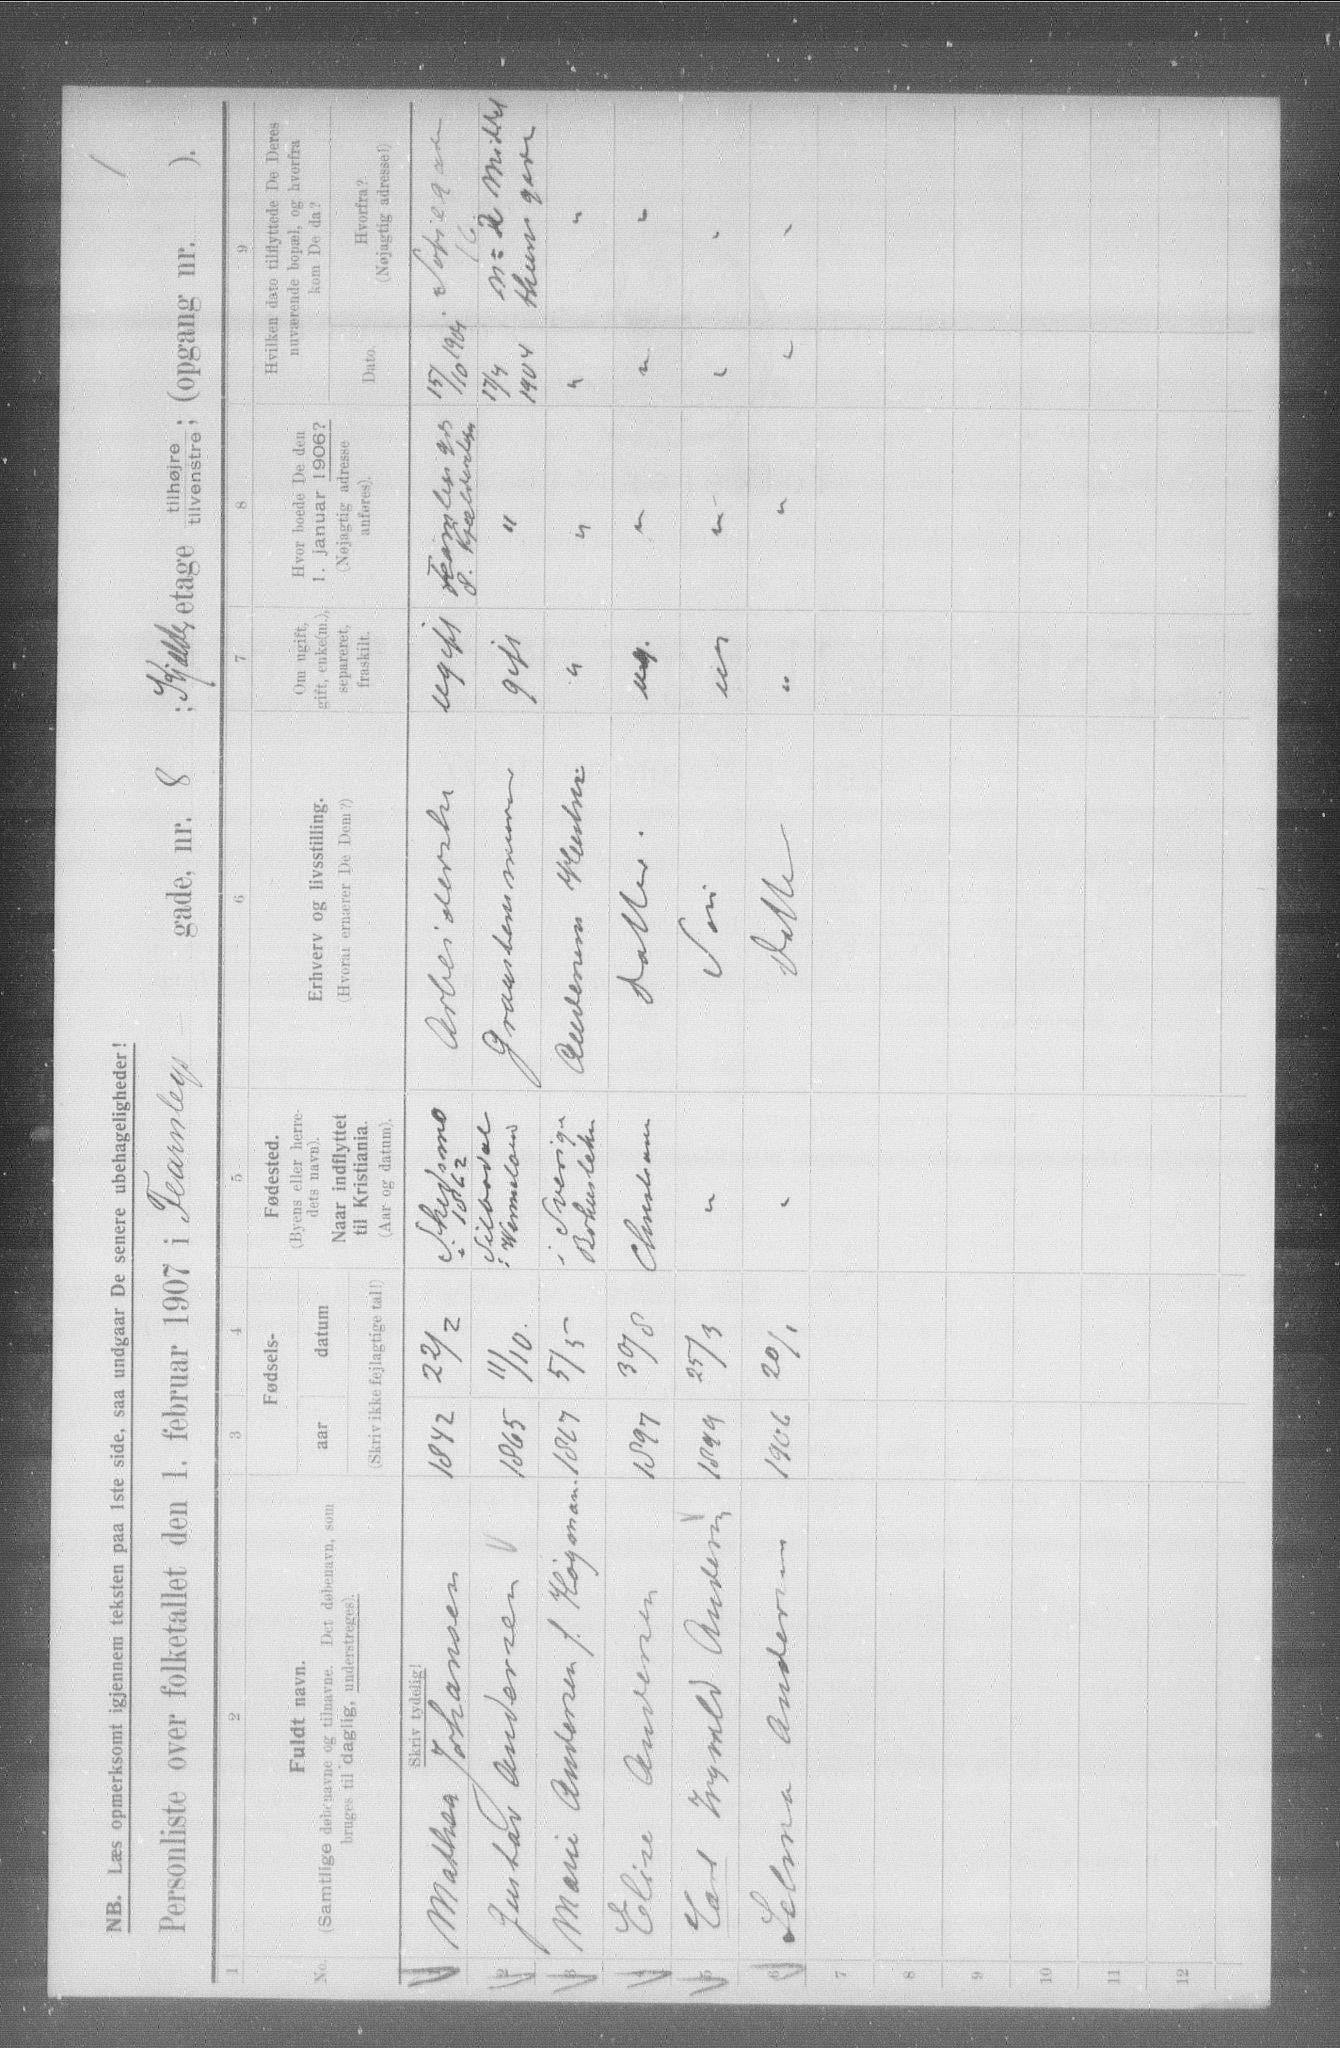 NB. Læs opmerksomt igjennem teksten paa 1ste side, saa undgaar De senere ubehageligheder!
Personliste over folketallet den 1. februar 1907 i Fearnleys gade, nr. 8 ; Kjelder etage tilhøjre tilvenstre; (opgang nr. ).
1 2 3 4 5 6 7 8 9
No.
Fuldt navn.
(Samtlige døbenavne og tilnavne. Det døbenavn, som
bruges til daglig, understreges).
Skriv tydelig!
Fødsels-
aar datum
(Skriv ikke fejlagtige tal!)
Fødested.
(Byens eller herre-
dets navn).
Naar indflyttet
til Kristiania.
(Aar og datum).
Erhverv og livsstilling.
(Hvoraf ernærer De Dem?)
Om ugift,
gift, enke(m.),
separeret,
fraskilt.
Hvor boede De den
1. januar 1906?
(Nøjagtig adresse
anføres).
Hvilken dato tilflyttede De Deres
nuværende bopæl, og hvorfra
kom De da?
Dato.
Hvorfra?
(Nøjagtig adresse!)
1 Mathea Johansen 1842 22/2 Skedsmo 1862 Arbeiderske ugift 8. Kjelderen 15/10 1904 Sofiegade
2 Gustav Andersen 1865 11/10. Silbodal i Wermeland Graastensmurer gift " 17/4 1904
3 Marie Andersen f. Høgman. 1867 5/5 i Sverige Andersens Hustru " " " "
4 Elise Andersen 1897 30/8 Christiania Datter. ug. " " "
5 Carl Ingvald Andersen 1899 25/3 " Søn " " "
6 Selma Andersen 1906 20/1 " Datter " " " "
7
8
9
10
11
12